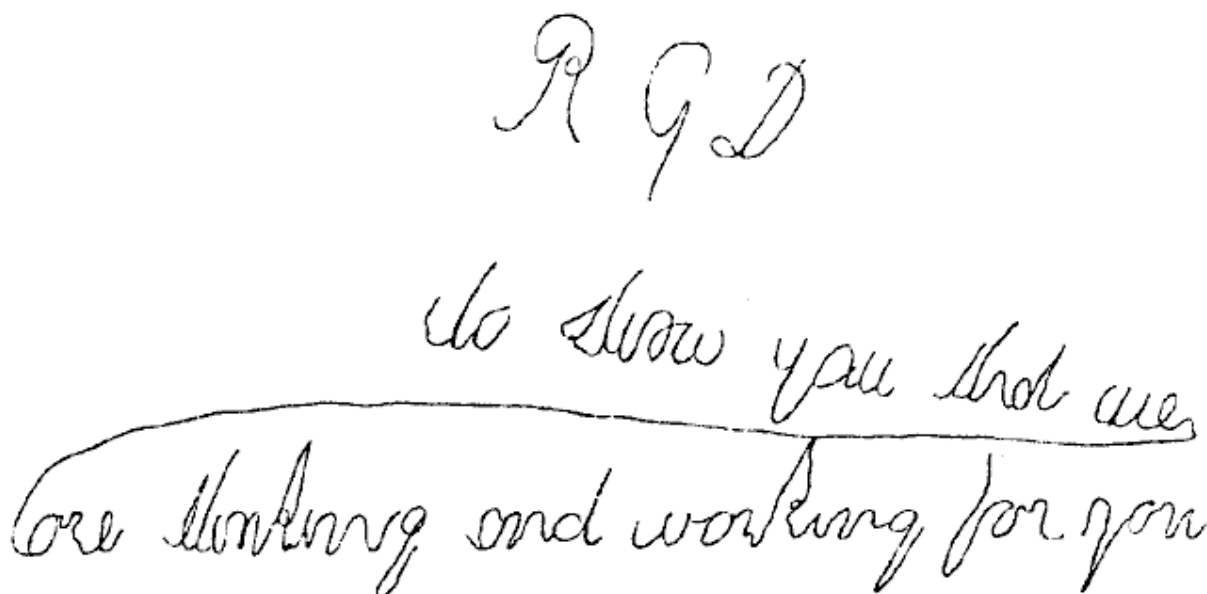 R G D
to show you that we
are thinking and working for you